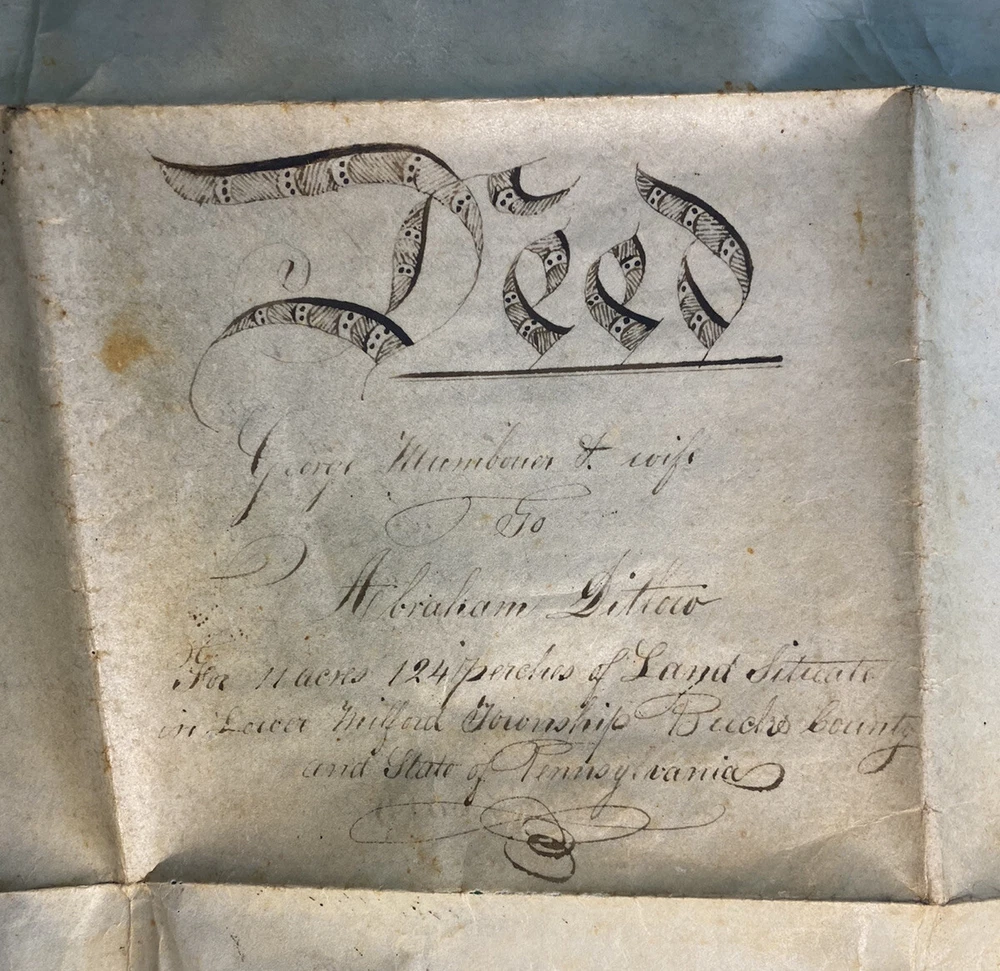 Deed
George Mumbauer & wife
To
Abraham Ditlow
For 11 acres 124 perches of Land Situate
in Lower Milford Township Bucks County
and State of Pennsylvania